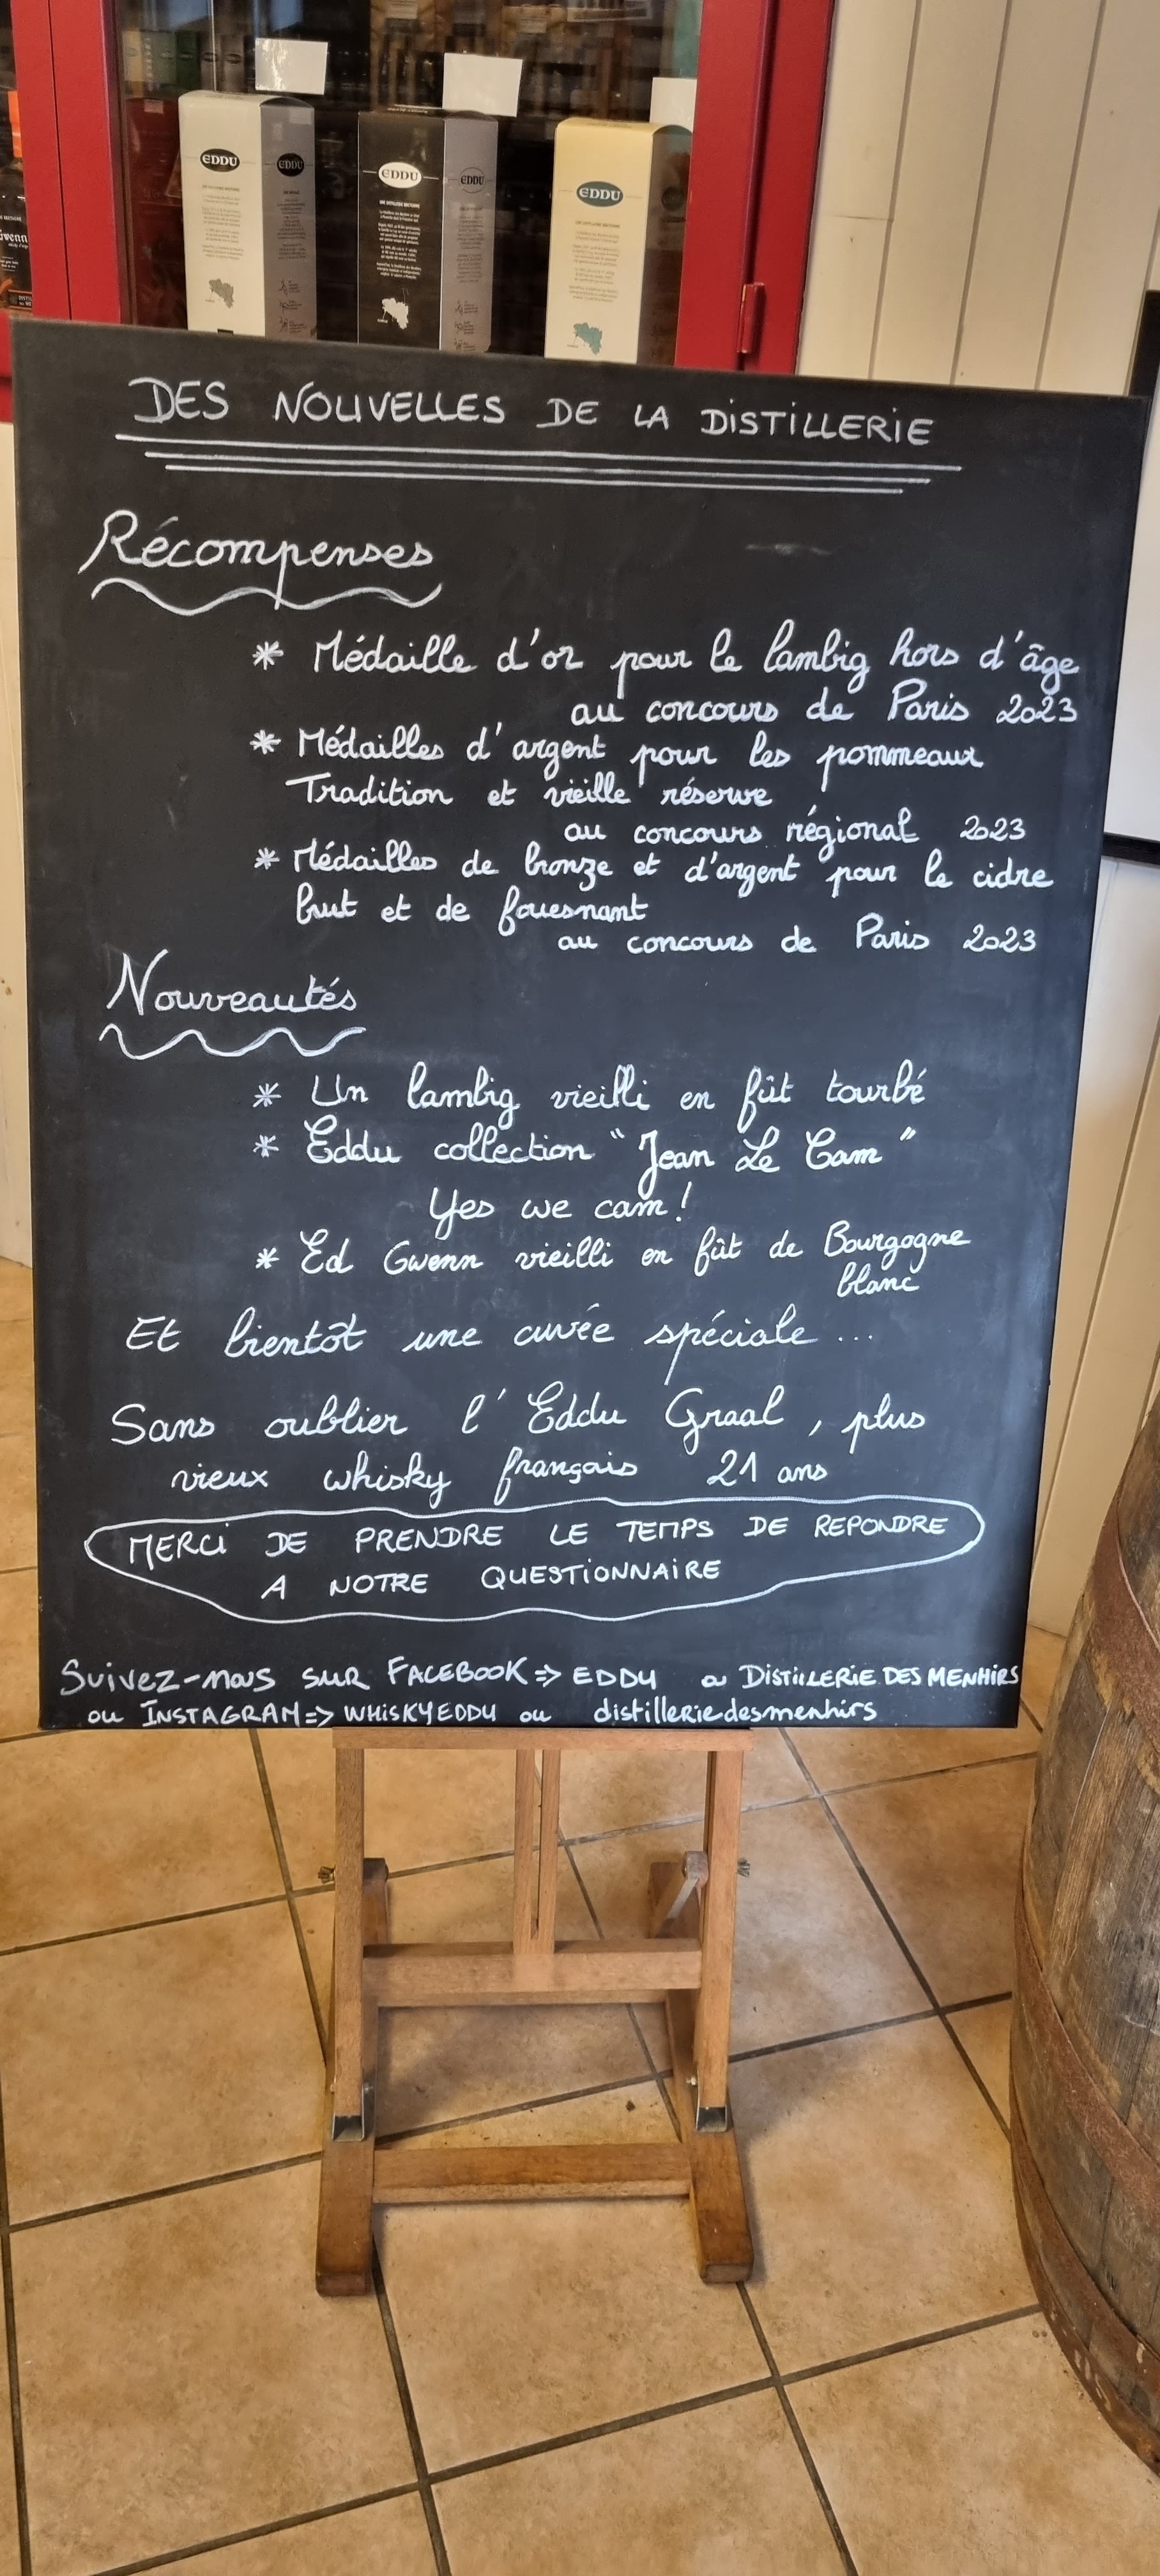 EDDU
EDDU
EDDU
EDDU
EDDU
DES NOUVELLES DE LA DISTILLERIE
Récompenses
* Médaille d'or pour le lambig hors d'âge
au concours de Paris 2023
* Médailles d'argent pour les pommeaux
Tradition et vieille réserve
au concours régional 2023
* Médailles de bronze et d'argent pour le cidre
brut et de fouesnant
au concours de Paris 2023
Nouveautés
* Un lambig vieilli en fût tourbé
* Eddu collection "Jean Le Cam"
Yes we cam!
* Ed Gwenn vieilli en fût de Bourgogne
blanc
Et bientôt une cuvée spéciale ...
Sans oublier l'Eddu Graal, plus
vieux whisky français 21 ans
MERCI DE PRENDRE LE TEMPS DE REPONDRE
A NOTRE QUESTIONNAIRE
Suivez-nous SUR FACEBOOK => EDDU ou DISTILLERIE DES MENHIRS
ou INSTAGRAM => WHISKYEDDU ou distilleriedesmenhirs